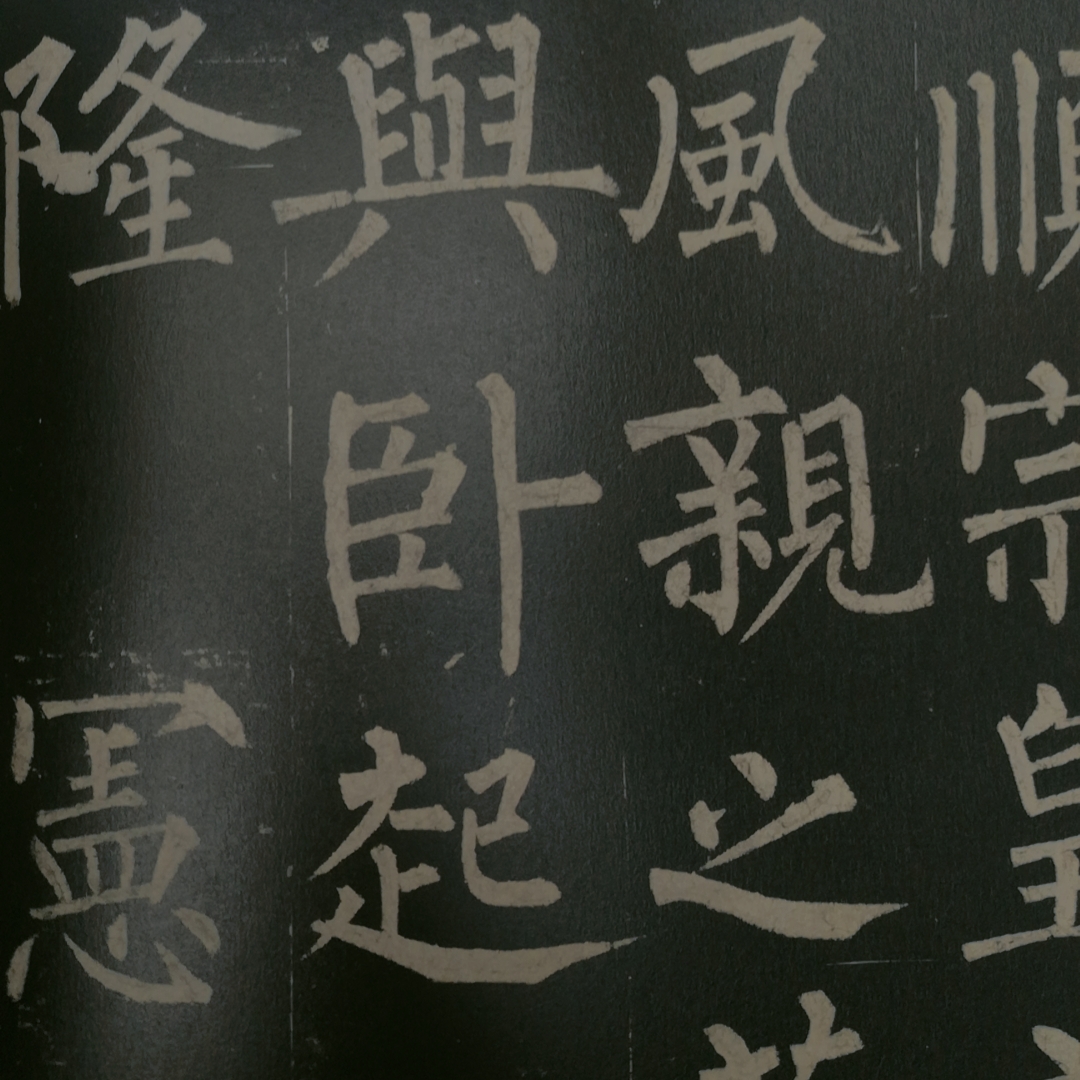 順宗皇
風親之
與卧起
隆憲